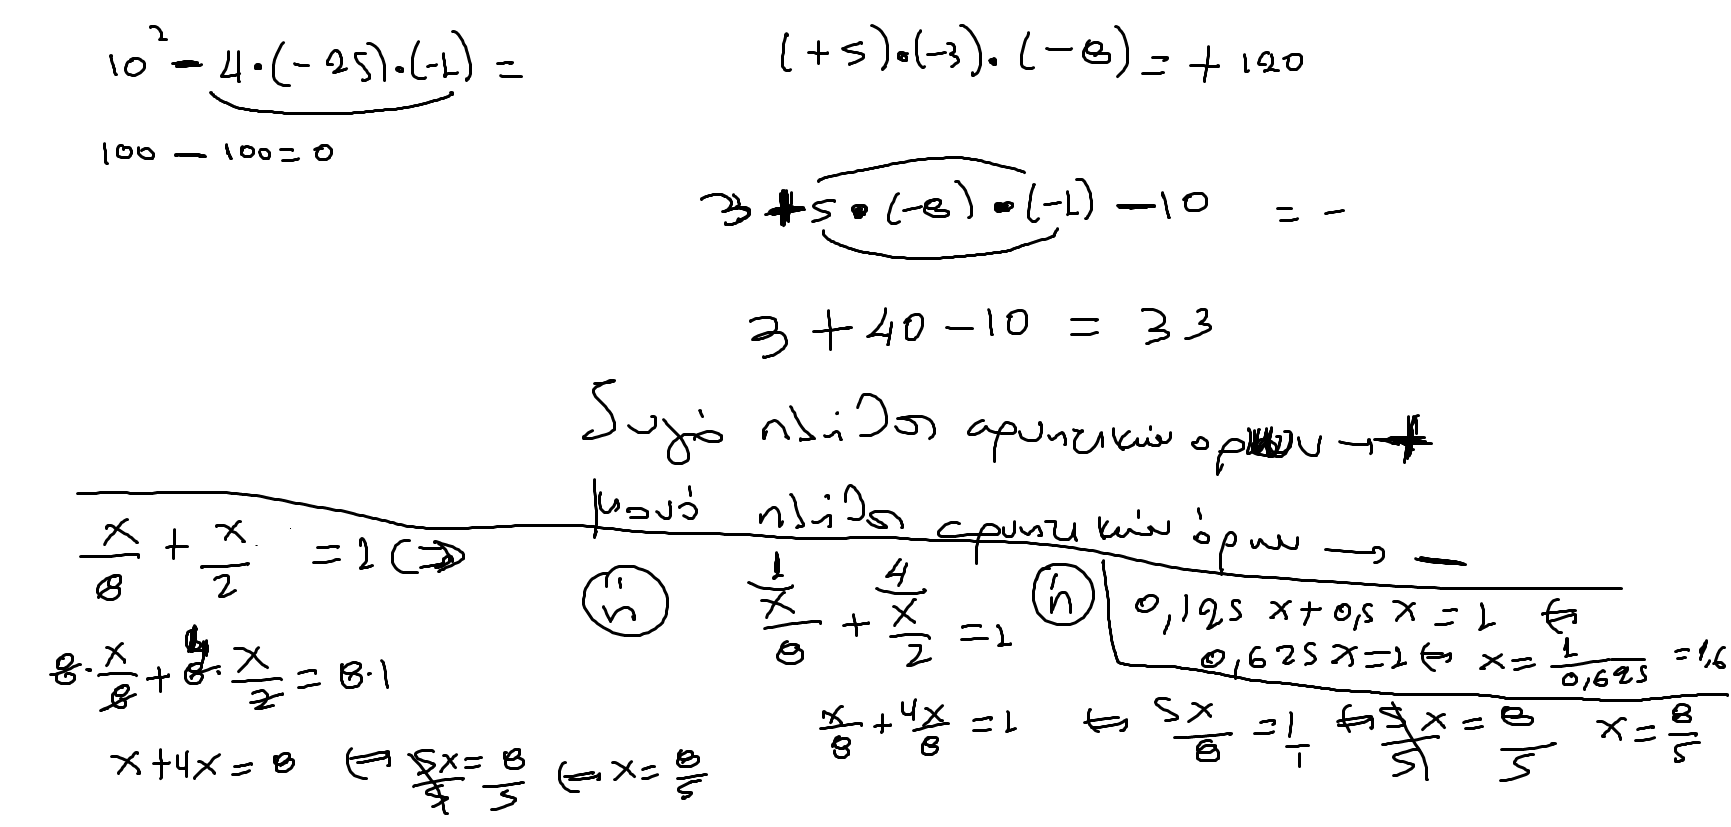 10² - 4·(-25)·(-1) =
100 - 100 = 0
(+5)·(-3)·(-8) = + 120
3 + 5·(-8)·(-1) - 10 = -
3 + 40 - 10 = 33
Ζυγό πλήθος αρνητικών όρων → +
μονό πλήθος αρνητικών όρων → -
x/8 + x/2 = 1 ⇔
8·x/8 + 8·x/2 = 8·1
4
x + 4x = 8 ⇔ 5x/5 = 8/5 ⇔ x = 8/5
ή
1 4
x/8 + x/2 = 1
x/8 + 4x/8 = 1 ⇔ 5x/8 = 1/1 ⇔ 5x/5 = 8/5 x = 8/5
ή
0,125 x + 0,5 x = 1 ⇔
0,625 x = 1 ⇔ x = 1/0,625 = 1,6